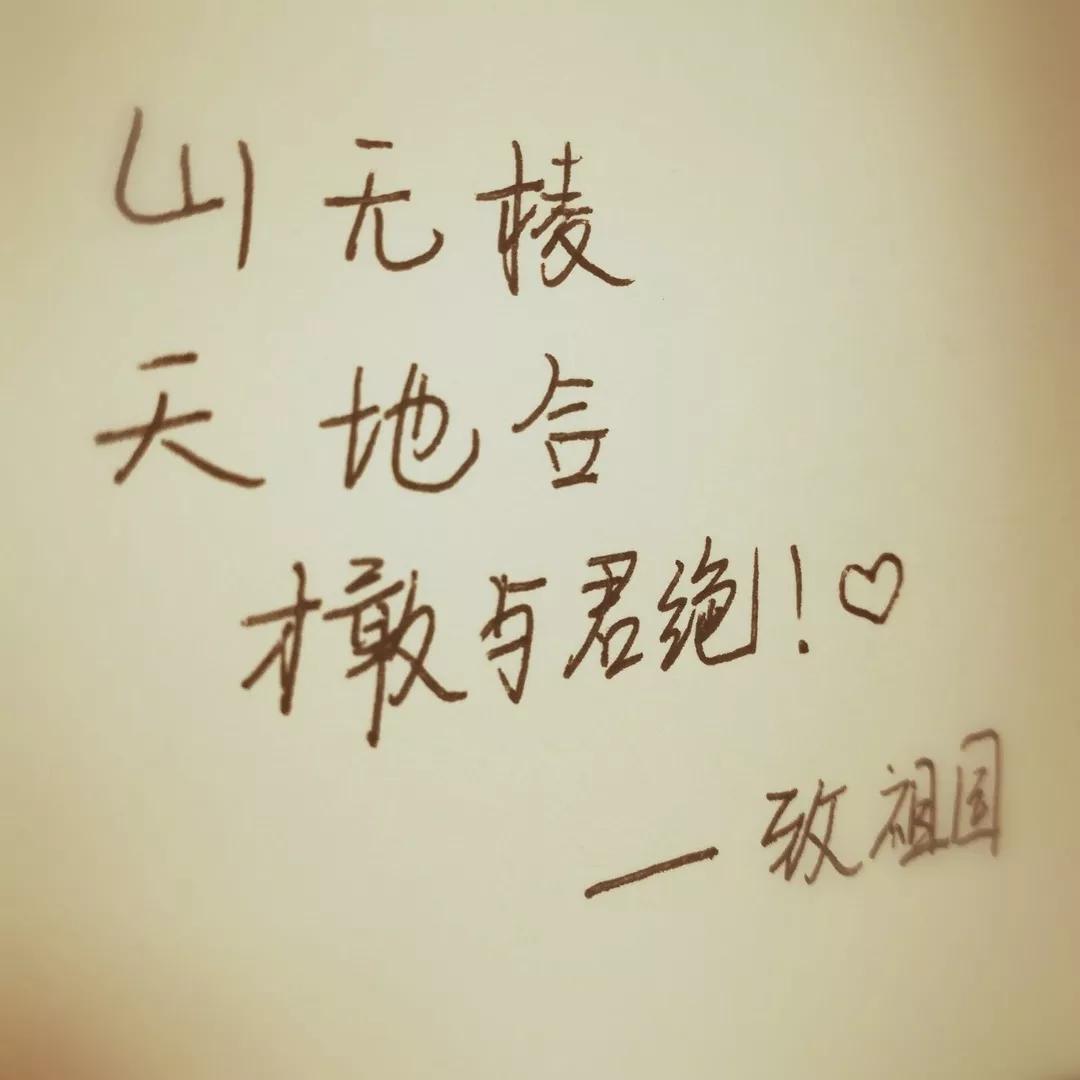 山无棱
天地合
才敢与君绝!♡
—致祖国